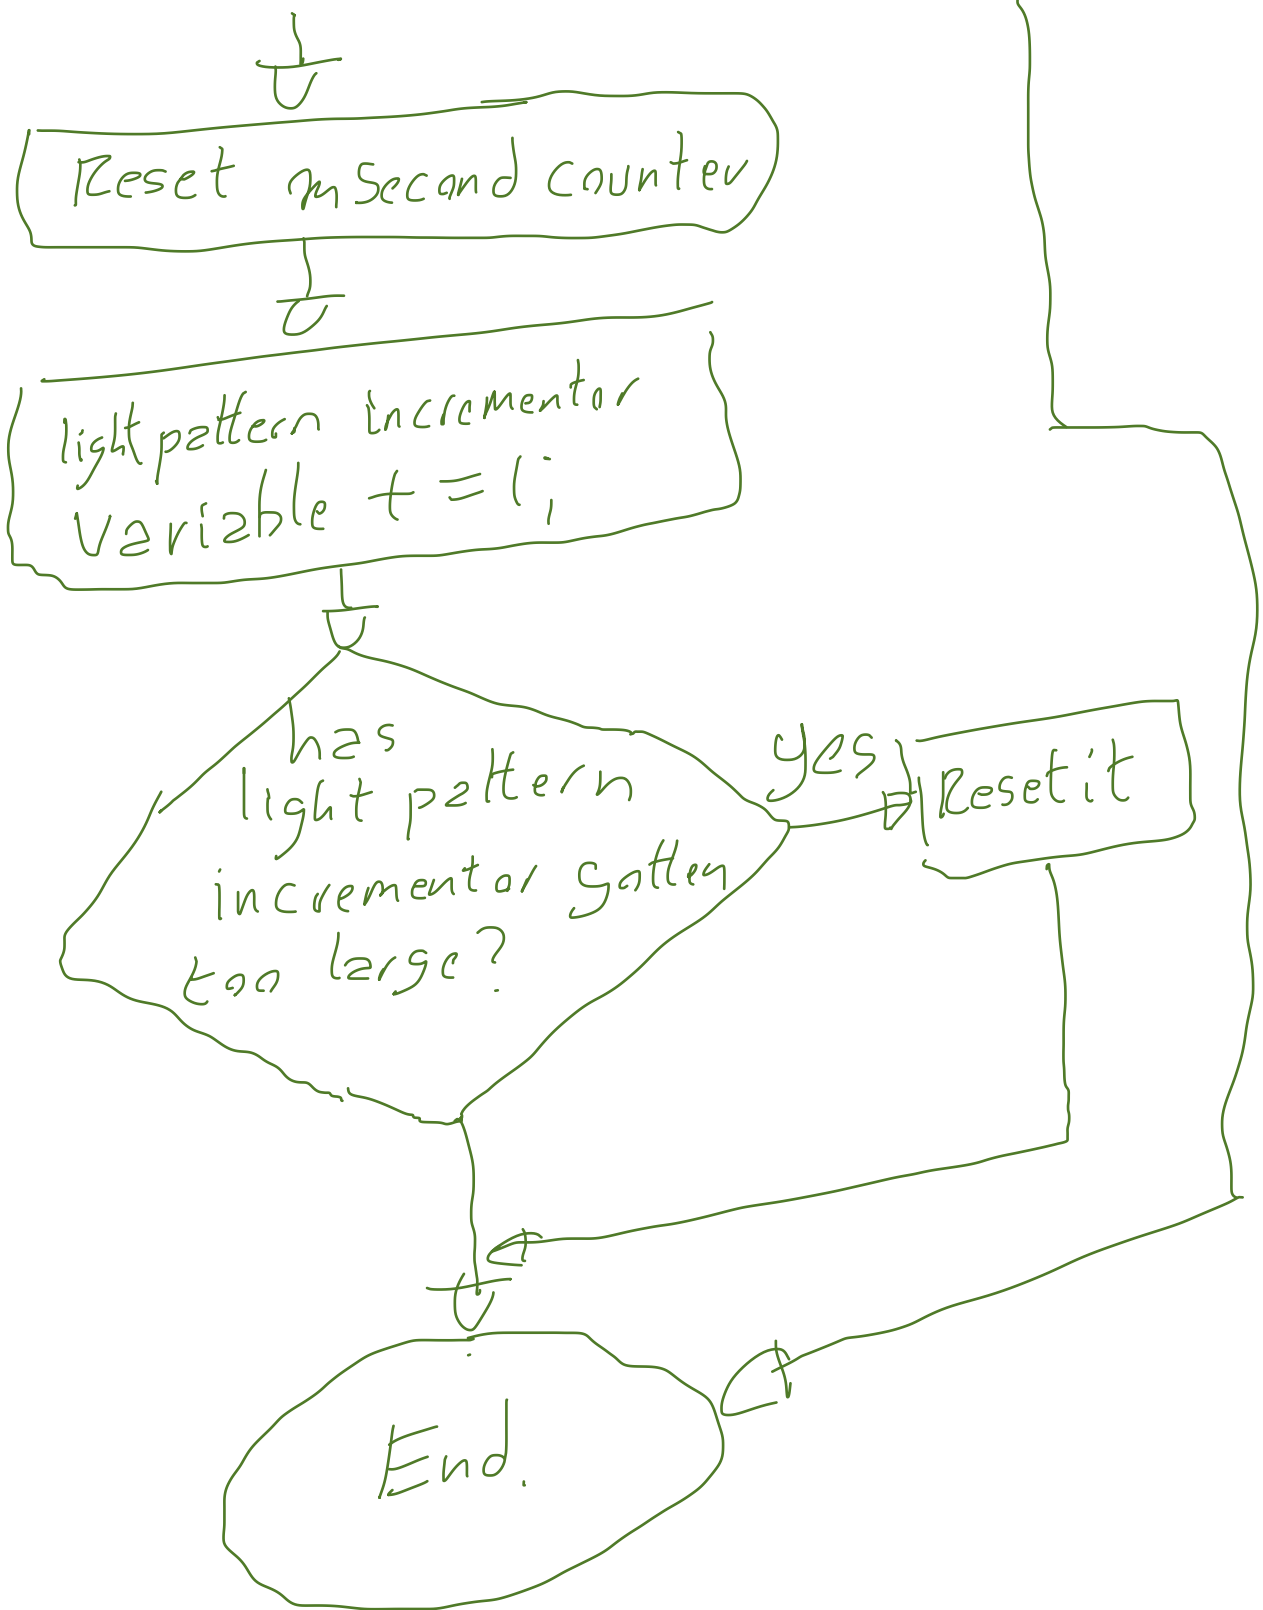 Reset msecond counter
light pattern incrementor
variable += 1;
has
light pattern
incrementor gotten
too large?
yes
Reset it
End.